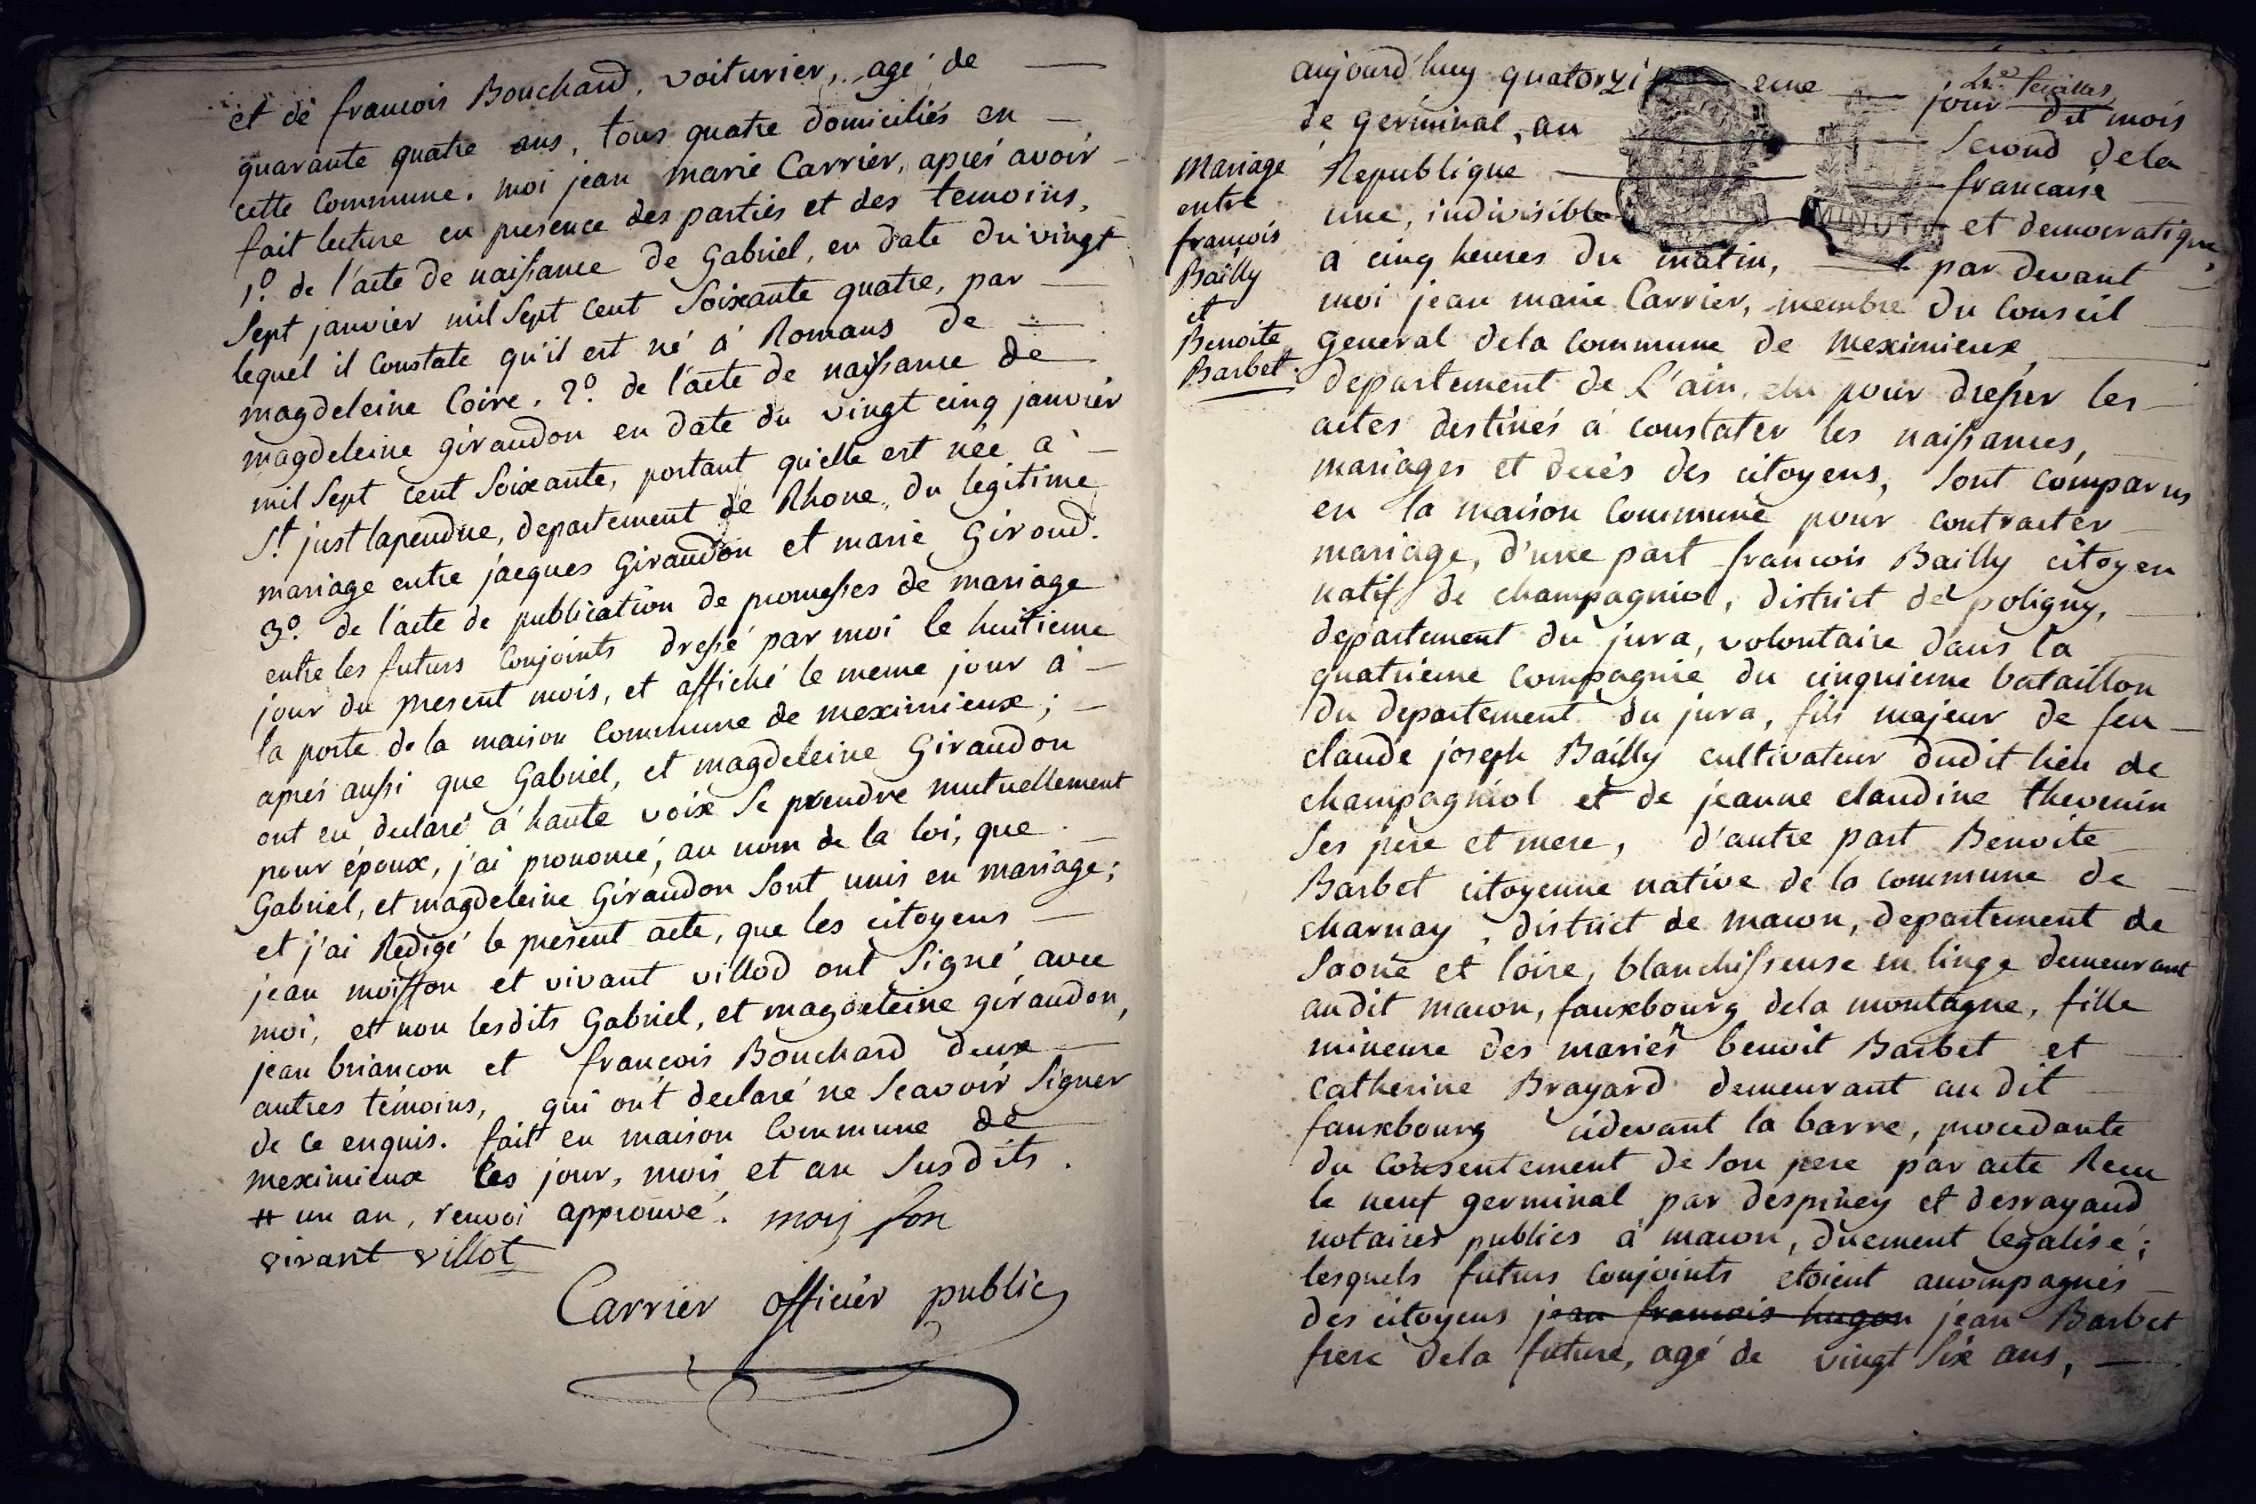 et de francois Bouchard, voiturier, agé de
quarante quatre ans, tous quatre domiciliés en
cette Commune. moi jean marie Carrier, aprés avoir
fait lecture en presence des parties et des temoins,
1º. de l'acte de naissance de Gabriel, en date du vingt
Sept janvier mil Sept cent Soixante quatre, par
lequel il constate qu'il est né à Romans de
magdeleine Coire. 2º. de l'acte de naissance de
magdeleine giraudon en date du vingt cinq janvier
mil Sept cent Soixante, portant qu'elle est née à
St. just lapendue, departement de Rhone, du legitime
mariage entre jacques Giraudon et marie Giroud.
3º. de l'acte de publication de promesses de mariage
entre les futurs Conjoints dressé par moi le huitieme
jour du present mois, et affiché le meme jour à
la porte de la maison Commune de meximieux;
aprés aussi que Gabriel, et magdeleine Giraudon
ont eu declaré à haute voix Se prendre mutuellement
pour époux, j'ai prononcé, au nom de la loi, que
Gabriel, et magdeleine Giraudon Sont unis en mariage;
et j'ai Redigé le present acte, que les citoyens
jean moisson et vivant villod ont Signé avec
moi, et non lesdits Gabriel, et magdeleine giraudon,
jean briancon et francois Bouchard deux
autres témoins, qui ont declaré ne Scavoir Signer
de ce enquis. fait en maison Commune de
meximieux les jour, mois et an Susdits.
# un an, renvoi approuvé. moisson
vivant villot
Carrier officier public
feuillet
aujourd'huy quatorzieme jour du mois
de germinal, an Second de la
Republique francaise
une, indivisible et democratique,
à cinq heures du matin, par devant
Mariage
entre
francois
Bailly
et
Benoite
Barbet.
moi jean marie Carrier, membre du Conseil
general dela Commune de meximieux
departement de L'ain, elu pour dresser les
actes destinés à constater les naissances,
mariages et decés des citoyens, Sont comparus
en la maison Commune pour contracter
mariage, d'une part francois Bailly citoyen
natif de champagniol, district de poligny,
departement du jura, volontaire dans la
quatrieme Compagnie du cinquieme bataillon
du departement du jura, fils majeur de feu
claude joseph Bailly cultivateur dudit lieu de
champagniol et de jeanne claudine thevenin
Ses père et mere, d'autre part Benoite
Barbet citoyenne native de la commune de
charnay, district de macon, departement de
Saone et loire, blanchisseuse en linge demeurant
audit macon, fauxbourg dela montagne, fille
mineure des mariés benoit Barbet et
catherine Brayard demeurant au dit
fauxbourg cidevant la barre, procedante
du consentement de Son pere par acte Recu
le neuf germinal par despiney et desrayaud
notaires publics à macon, duement legalisé;
lesquels futurs Conjoints etoient acompagnés
des citoyens jean francois hugon jean Barbet
frere dela future, agé de vingt Six ans,
MINUTE